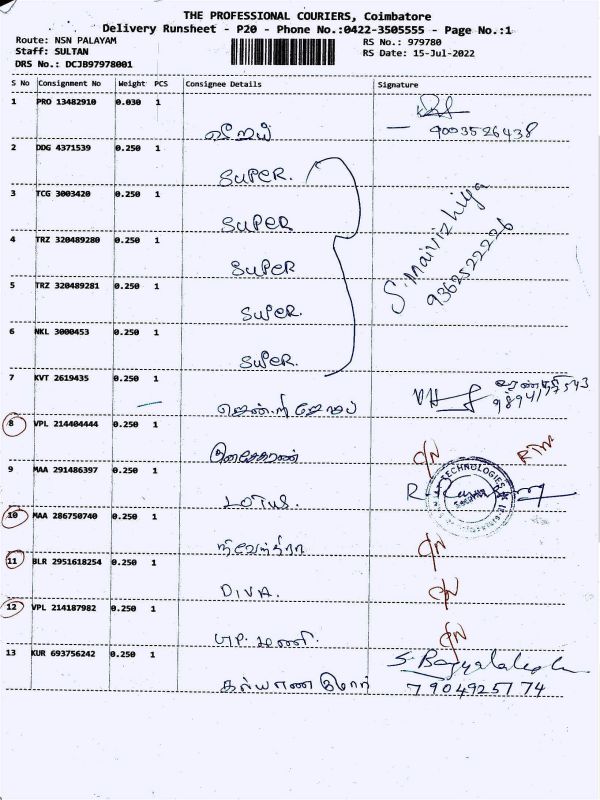 THE PROFESSIONAL COURIERS, Coimbatore
Delivery Runsheet - P20 - Phone No.:0422-3505555 - Page No.:1
Route: NSN PALAYAM RS No.: 979780
Staff: SULTAN RS Date: 15-Jul-2022
DRS No.: DCJB97978001
S No Consignment No Weight PCS Consignee Details Signature
1 PRO 13482910 0.030 1
விஜய் 9003526438
2 DDG 4371539 0.250 1
SUPER.
3 TCG 3003420 0.250 1
SUPER
S. Maivizhiya
9362522226
4 TRZ 320489280 0.250 1
SUPER
5 TRZ 320489281 0.250 1
SUPER.
6 NKL 3000453 0.250 1
SUPER.
7 KVT 2619435 0.250 1
ஹென்றி ஜோசப்
8 VPL 214404444 0.250 1
D/N RTN
9 MAA 291486397 0.250 1
LOTUS.
TECHNOLOGIES
10 MAA 286750740 0.250 1
D/N
11 BLR 2951618254 0.250 1
DIVA. D/N
12 VPL 214187982 0.250 1
VTP. மணி. D/N
13 KUR 693756242 0.250 1
கல்யாண மோர் 7904925174